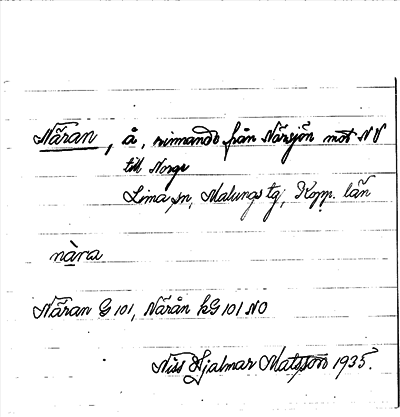 Näran, å, rinnande från Närsjön mot NV
till Norge
Lima sn, Malungs tg, Kopp. län
nàra
Näran G 101, Närån kG 101 NO
Nils Hjalmar Matsson 1935.